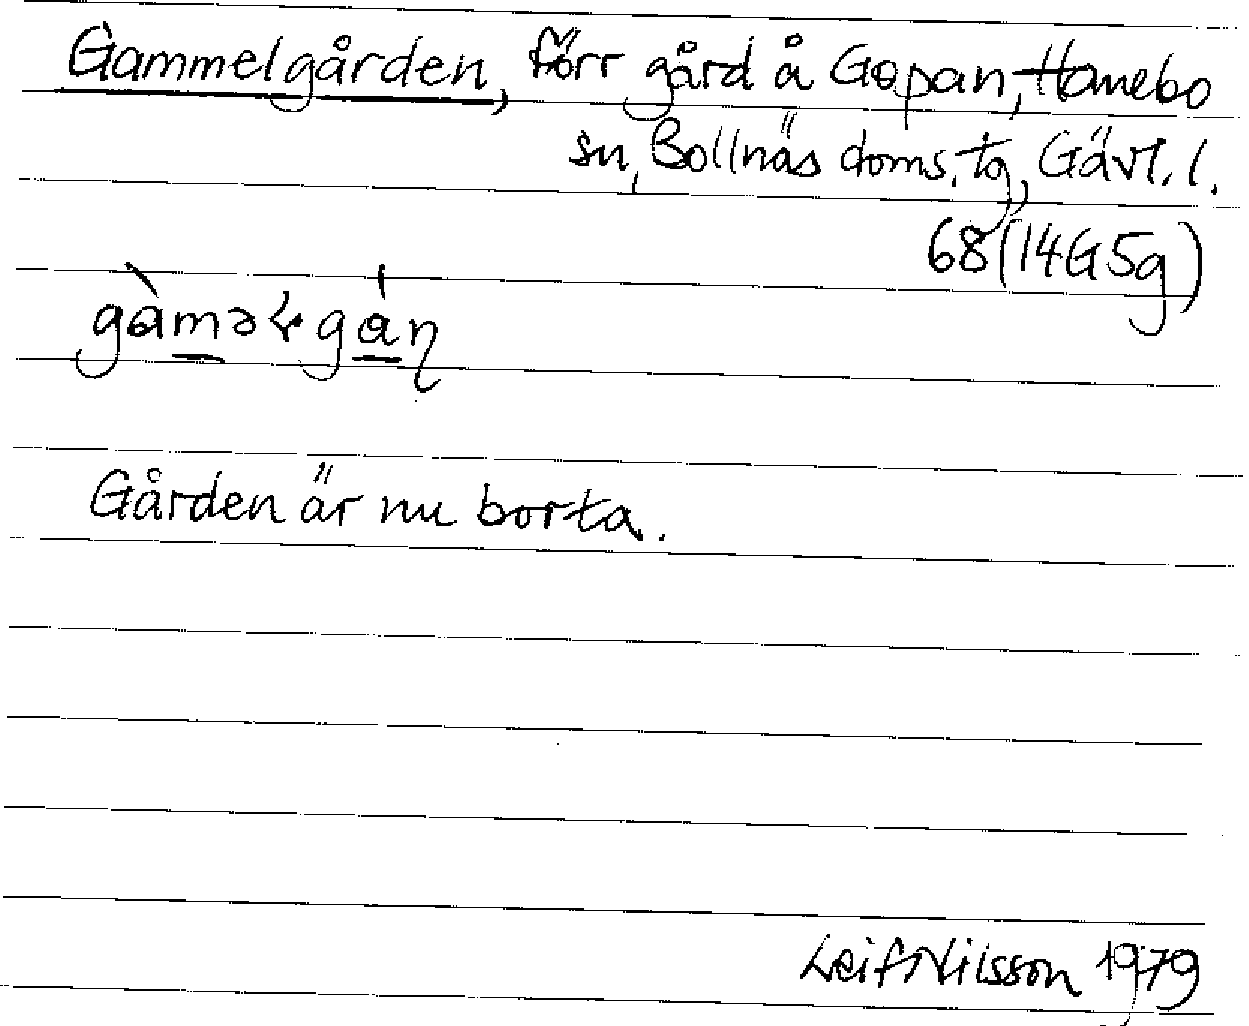 Gammelgården, förr gård å Gopan, Hanebo
sn, Bollnäs doms. tg, Gävl. l.
68 (14G5g)
gàməɬgáɳ
Gården är nu borta.
Leif Nilsson 1979